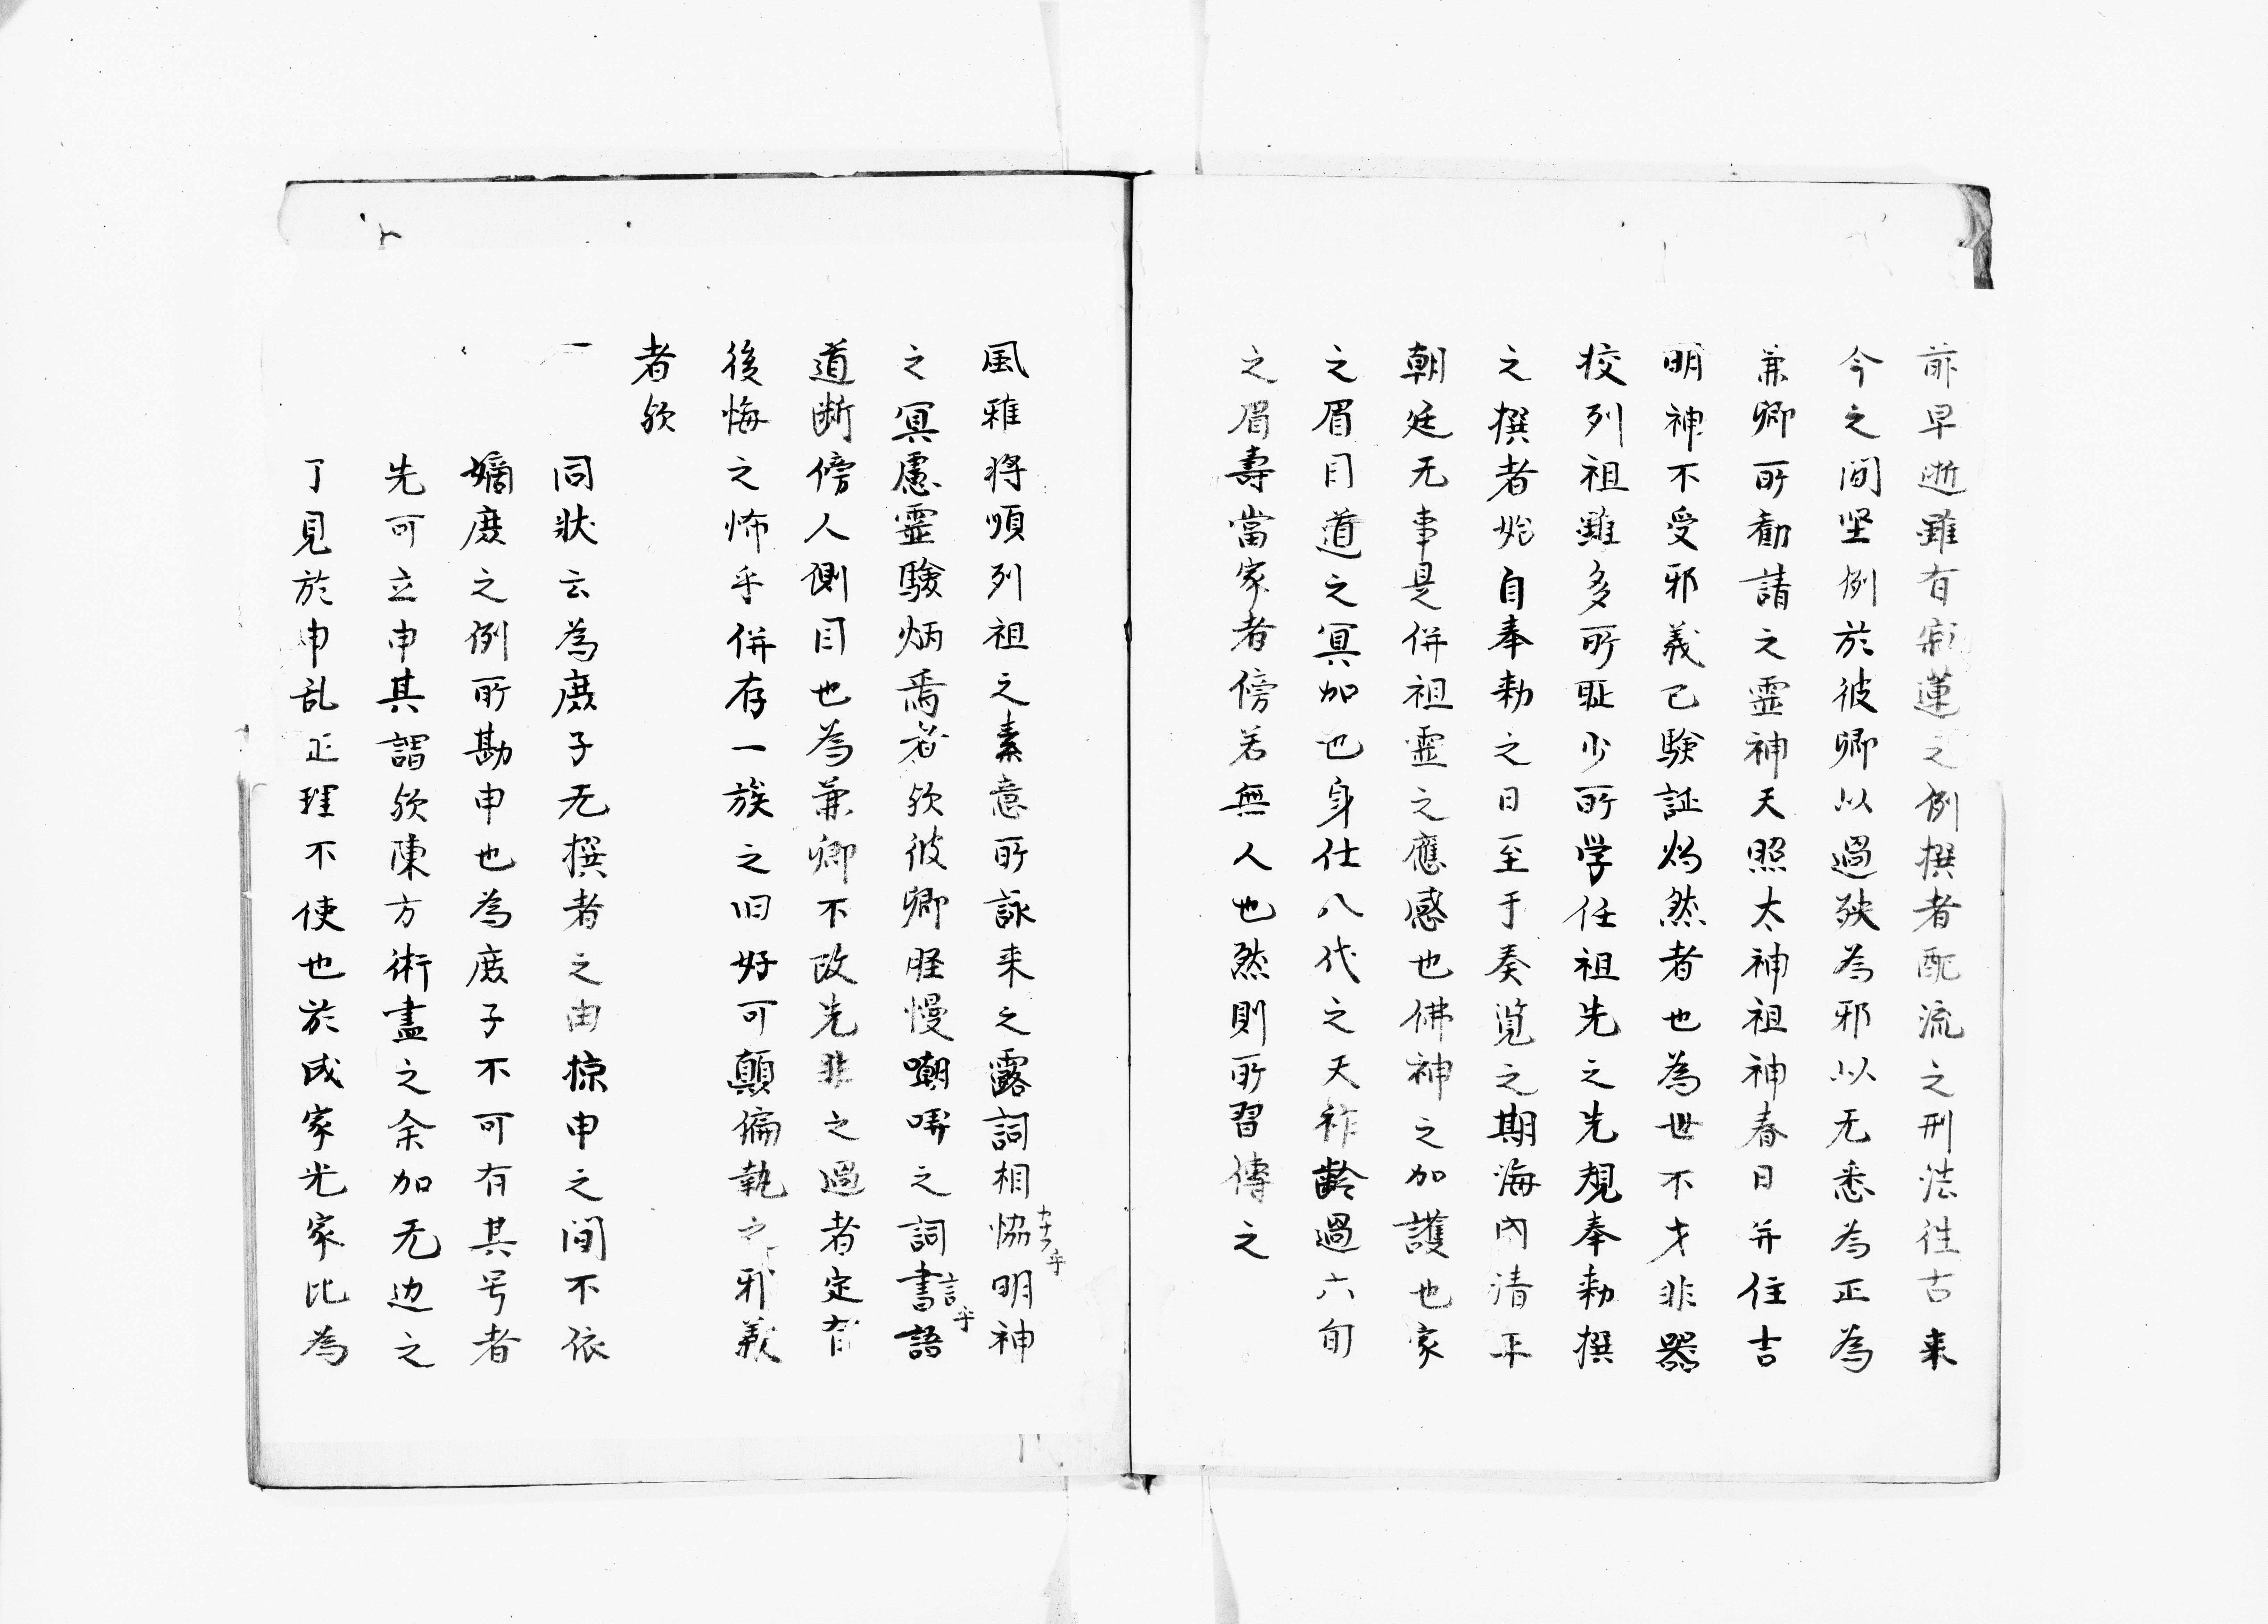 前早逝雖有寂蓮之例撰者配流之刑法往古来
今之間坐例於彼卿以過殃為邪以无悉為正為
兼卿所勧請之霊神天照太神祖神春日并住吉
明神不受邪義已験証灼然者也為世不才非器
校列祖雖多所耻少所学任祖先之先規奉勅撰
之撰者始自奉勅之日至于奏覧之期海内清平
朝廷无事是併祖霊之應感也佛神之加護也家
之眉目道之冥加也身仕八代之天祚齢過六旬
之眉壽當家者傍若無人也然則所習傳之
風雅将順列祖之素意所詠来之露詞相恊明神
カナフ乎
之冥慮霊験炳焉者欤彼卿軽慢嘲哢之詞書語
言乎
道断傍人側目也為兼卿不改先非之過者定有
後悔之怖乎併存一族之旧好可顛偏執之邪歎
者欤
一 同状云為庶子无撰者之由掠申之間不依
嫡庶之例所勘申也為庶子不可有其号者
先可立申其謂欤陳方術盡之余加无边之
了見於申乱正理不使也於成家光家比為